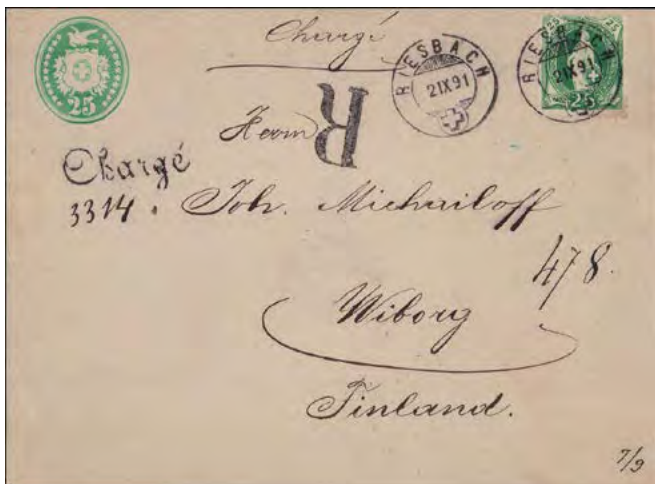 Chargé
25
RIESBACH
2 IX 91
RIESBACH
2 IX 91
25
Herrn
R
Chargé
3314.
Joh. Michailoff
478.
Wiborg
Finland.
7/9